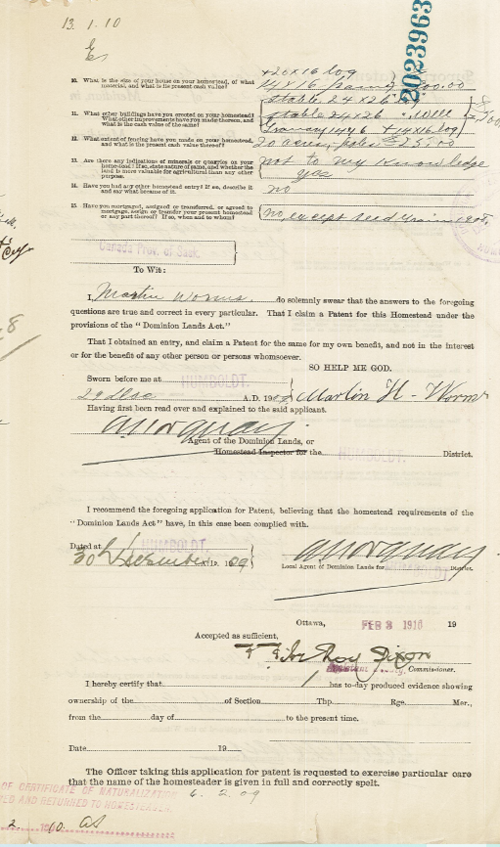 13.1.10
2023963
+20x16 log
10. What is the size of your house on your homestead, of what material, and what is its present cash value?
14 x 16 frame
stable 24 x 26
11. What other buildings have you erected on your homestead? What other improvements have you made thereon, and what is the cash value of the same?
stable 24 x 26 . Well
Granary 14x16 + 14x16 log
12. What extent of fencing have you made on your homestead, and what is the present cash value thereof?
20 acres, poles $25.00
13. Are there any indications of minerals or quarries on your homestead? If so, state nature of same, and whether the land is more valuable for agricultural than any other purpose.
not to my knowledge
yes
14. Have you had any other homestead entry? If so, describe it and say what became of it.
no
15. Have you mortgaged, assigned or transferred, or agreed to mortgage, assign or transfer your present homestead or any part thereof? If so, when and to whom?
No, except seed grain 1908,
Canada Prov. of Sask.
To Wit:
I, Martin Worms do solemnly swear that the answers to the foregoing
questions are true and correct in every particular. That I claim a Patent for this Homestead under the
provisions of the "Dominion Lands Act."
That I obtained an entry, and claim a Patent for the same for my own benefit, and not in the interest
or for the benefit of any other person or persons whomsoever.
SO HELP ME GOD.
Sworn before me at HUMBOLDT.
29 Dec A.D. 1909 Martin H - Worms
Having first been read over and explained to the said applicant.
Agent of the Dominion Lands, or
Homestead Inspector for the HUMBOLDT. District.
I recommend the foregoing application for Patent, believing that the homestead requirements of the
"Dominion Lands Act" have, in this case been complied with.
Dated at HUMBOLDT
30 December A.D. 1909
Local Agent of Dominion Lands for District.
Ottawa, FEB 3 1910 19
Accepted as sufficient,
Commissioner.
I hereby certify that has to-day produced evidence showing
ownership of the of Section Thp. Rge. Mer.,
from the day of to the present time.
Date 19
The Officer taking this application for patent is requested to exercise particular care
that the name of the homesteader is given in full and correctly spelt.
OF CERTIFICATE OF NATURALIZATION
AND RETURNED TO HOMESTEADER.
6.2.09